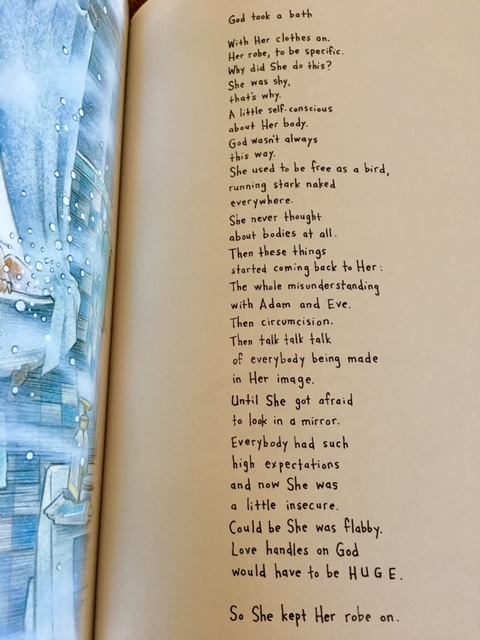 God took a bath
With Her clothes on.
Her robe, to be specific.
Why did She do this?
She was shy,
that's why.
A little self-conscious
about Her body.
God wasn't always
this way.
She used to be free as a bird,
running stark naked
everywhere.
She never thought
about bodies at all.
Then these things
started coming back to Her:
The whole misunderstanding
with Adam and Eve.
Then circumcision.
Then talk talk talk
of everybody being made
in Her image.
Until She got afraid
to look in a mirror.
Everybody had such
high expectations
and now She was
a little insecure.
Could be She was flabby.
Love handles on God
would have to be HUGE.
So She kept Her robe on.